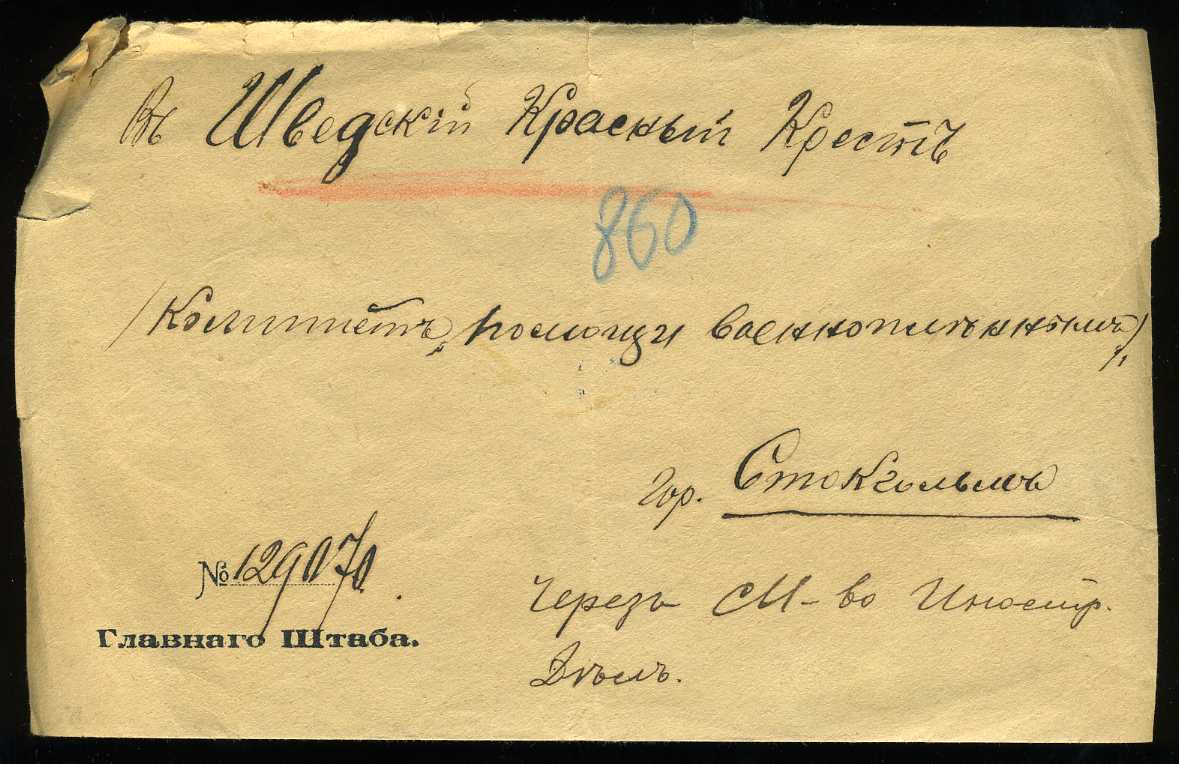 Въ Шведскій Красный Крестъ
860
/Комитетъ помощи военноплѣннымъ/,
Гор. Стокгольмъ
№ 129070.
Главнаго Штаба.
Черезъ М-во Иностр.
Дѣлъ.